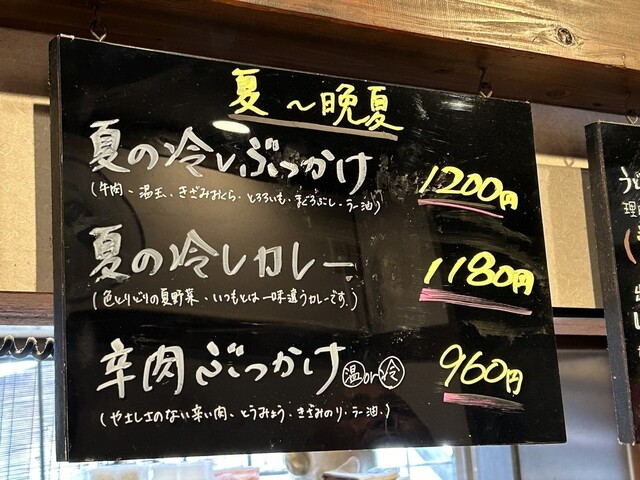 夏〜晩夏
夏の冷しぶっかけ 1200円
(牛肉、温玉、きざみおくら、とろろいも、まぐろぶし、ラー油)
夏の冷しカレー 1180円
(色とりどりの夏野菜、いつもとは一味違うカレーです。)
辛肉ぶっかけ 温or冷 960円
(やさしさのない辛い肉、とうみょう、きざみのり、ラー油、)
うど
理